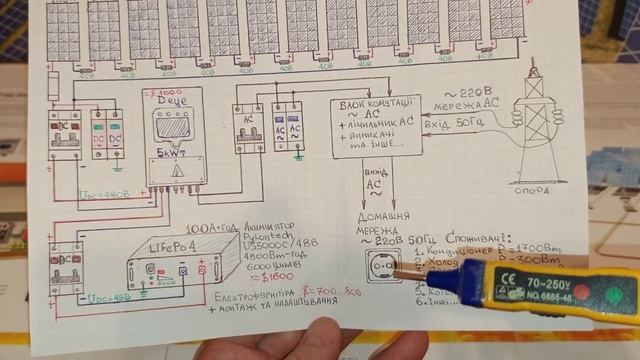 40В 40В 40В 40В 40В 40В 40В 40В 40В
≈$1000
Deye
5кWт
DC
DC DC
AC
AC AC
~ ~
UDC=480В
БЛОК КОМУТАЦІЇ
~ AC
+ ЛІЧИЛЬНИК AC
+ ВИМИКАЧІ
ТА ІНШЕ...
~ 220В
МЕРЕЖА AC
ВХІД 50Гц
ОПОРА
ВИХІД
AC
~
ДОМАШНЯ
МЕРЕЖА
~ 220В 50Гц
100А•год
LiFePo4
DC
UDC=48В
Акумулятор
Pylontech
US5000C/48В
4800Вт-год
6000циклів
≈$1600
Електрофурнітура $=700...800
+ МОНТАЖ ТА НАЛАШТУВАННЯ
Споживачі:
1. Кондиціонер P=1700Вт
2. Холод P=300Вт
5.
6. Інші,
CE
70-250V
NO. 6885-48